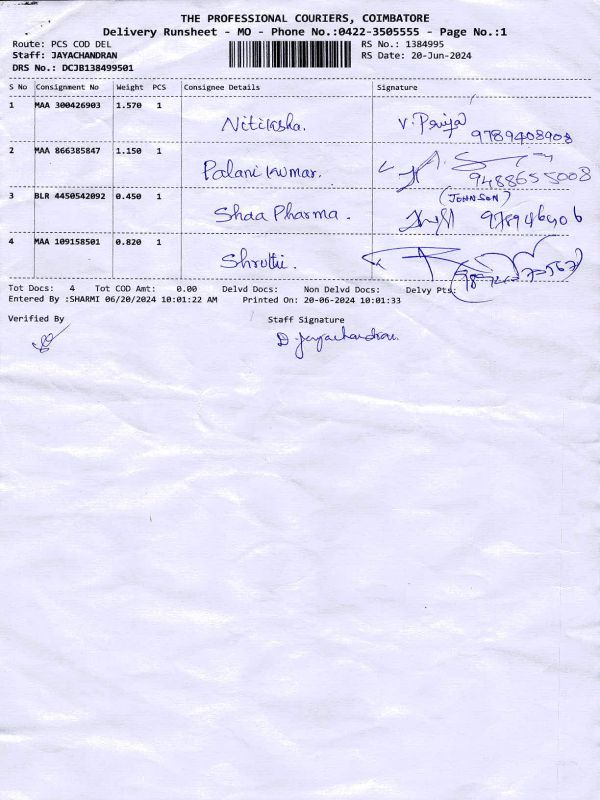 THE PROFESSIONAL COURIERS, COIMBATORE
Delivery Runsheet - MO - Phone No.:0422-3505555 - Page No.:1
Route: PCS COD DEL RS No.: 1384995
Staff: JAYACHANDRAN RS Date: 20-Jun-2024
DRS No.: DCJB138499501
S No Consignment No Weight PCS Consignee Details Signature
1 MAA 300426903 1.570 1
Nitiksha. V. Priya 9789408908
2 MAA 866385847 1.150 1
Palani Kumar. 9488655008
3 BLR 4450542092 0.450 1 (JOHNSON)
Shaa Pharma.
4 MAA 109158501 0.820 1
Shruthi.
Tot Docs: 4 Tot COD Amt: 0.00 Delvd Docs: Non Delvd Docs: Delvy Pts:
Entered By :SHARMI 06/20/2024 10:01:22 AM Printed On: 20-06-2024 10:01:33
Verified By Staff Signature
D. Jayachandran.